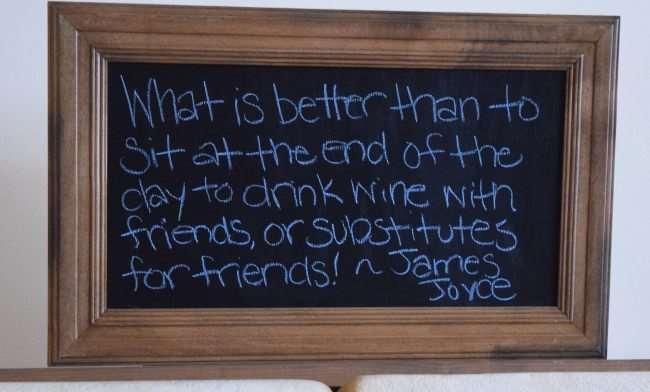 What is better than to
Sit at the end of the
day to drink wine with
friends, or substitutes
for friends! ~ James
Joyce